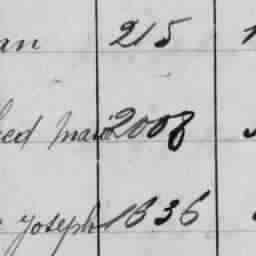 an 215
ed Mari 2008
Joseph 1636